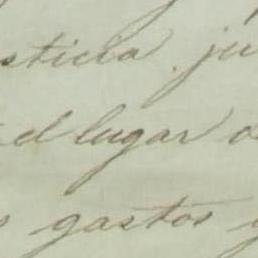 sticia ju
el lugar d
s gastos y